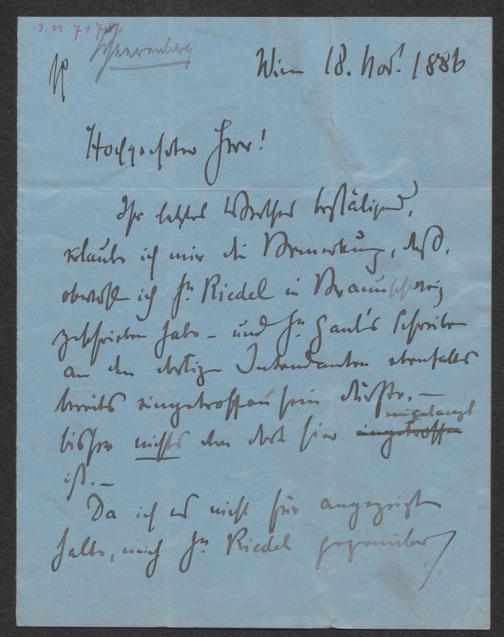 Wien 18. Nov. 1886
Hochgeehrter Herr!
Ihr letztes Werthes bestätigend,
erlaube ich mir die Bemerkung, daß,
obwohl ich Hn Riedel in Braunschweig
geschrieben habe – und Hn Gaul's Schreiben
an den dortigen Intendanten ebenfalls
bereits eingetroffen sein dürfte, –
eingelangt
bisher nichts von dort hier eingetroffen
ist. –
Da ich es nicht für angezeigt
halte, mich Hn Riedel gegenüber